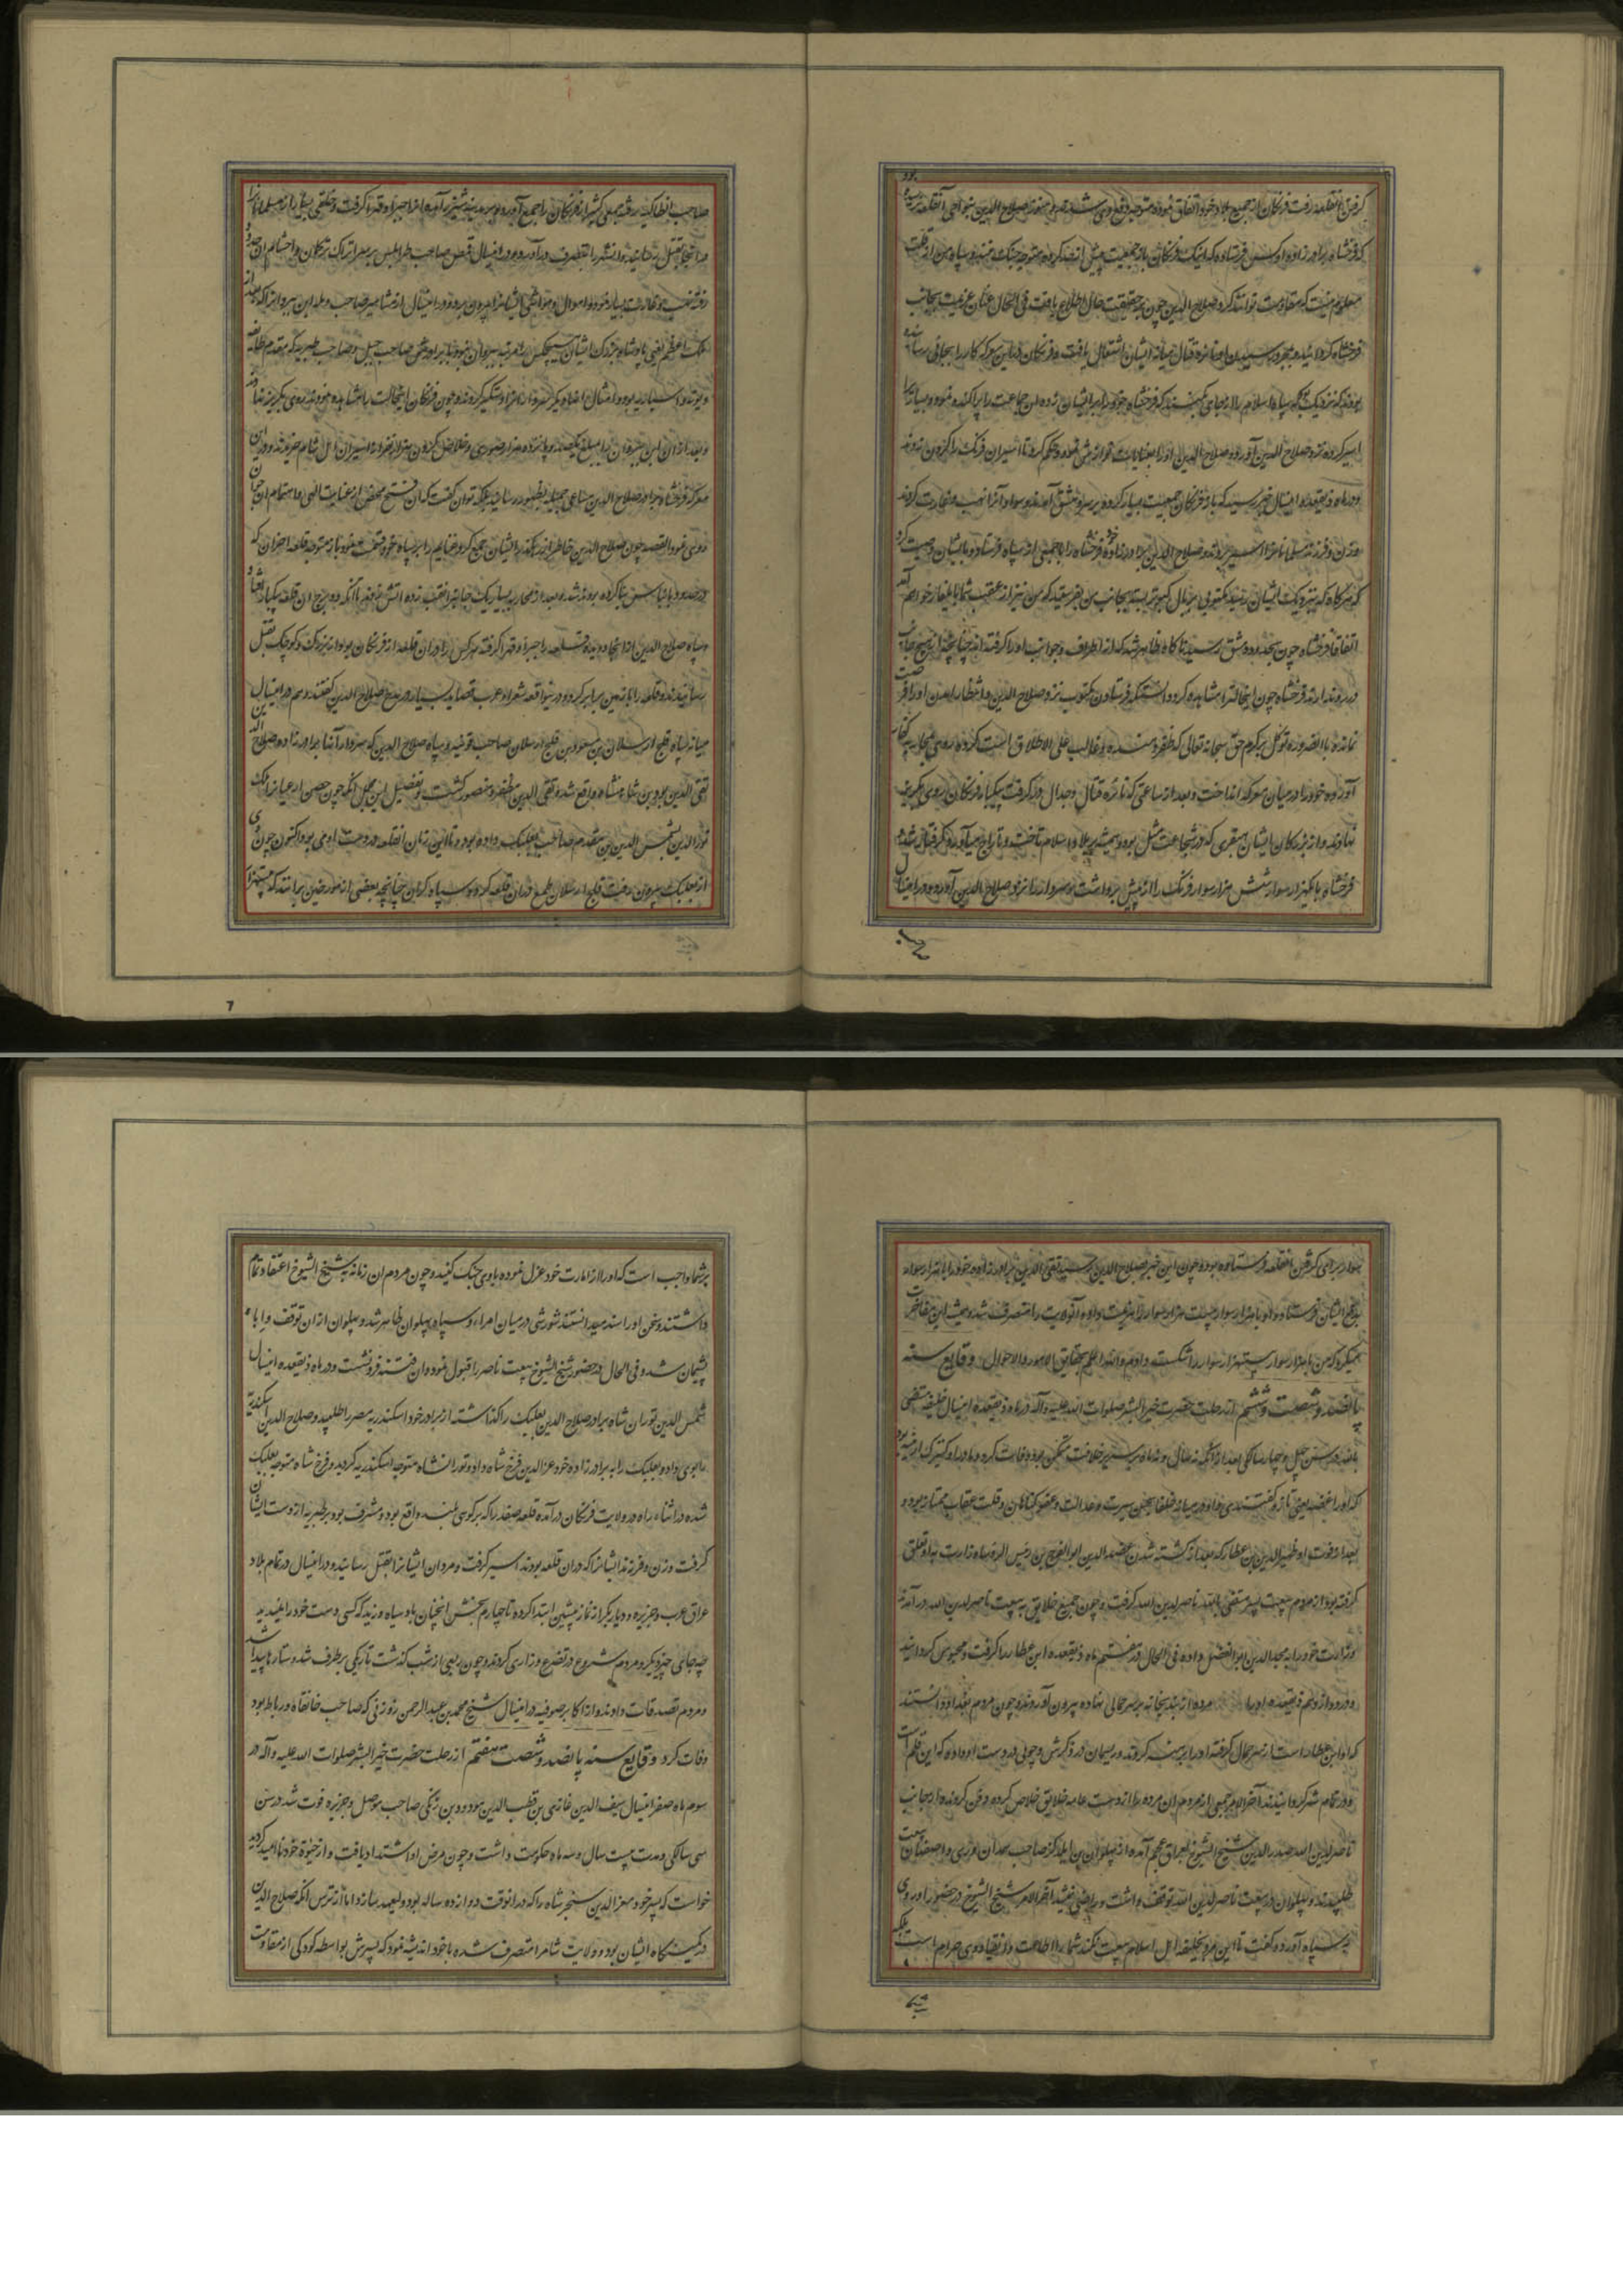 کرفتن آنقلعه رفت فرنکان از جمیع بلاد خود اتفاق نموده متوجه صلاح الدین بنواحی آنقلعه رسیده
که فرخشاه برادرزاده او کس فرستاده که اینک فرنکان با جمعیت پیش از حد کرده متوجه جنک شدند و سپاه من از قلت
معلوم نیست که مقاومت توانند کرد صلاح الدین چون بر حقیقت حال اطلاع یافت فی الحال عنان عزیمت بجانب
فرخشاه کردانید و بمجرد رسیدن او نایره قتال میانه ایشان اشتعال یافت و فرنکان در این معرکه کار را بجائی رسانیده
بودند که نزدیک بود که سپاه اسلام را از جای که فرخشاه خود را بر ایشان زده آن جماعت را پراکنده نموده و بسیار
اسیر کرده نزد صلاح الدین آورد و صلاح الدین او را بعنایات نوازش نمود و حکم کرد تا اسیران فرنک را کردن زدند
و در ماه ذیقعده اینسال خبر رسید که باز فرنکان جمعیت بسیار کرده بر سر دمشق آمدند و سواد آنرا نهب و غارت کردند
و زن و فرزند مسلمانانرا اسیر بردند صلاح الدین برادرزاده خود فرخشاه را با جمعی از سپاه فرستاد و بایشان وصیت کرد
که هرکاه که بنزدیک ایشان رسید مکتوبی بر بال کبوتر بسته بجانب من بفرستید که من نیز از عقب شما بایلغار خواهم آمد
اتفاقا فرخشاه چون بحدود دمشق رسید ناکاه ظاهر شد که از اطراف و جوانب او را کرفته اند چنانچه از هیچ جانب
در رو ندارند فرخشاه چون اینحالت را مشاهده کرد دانست که فرستادن مکتوب نزد صلاح الدین و انتظار آمدن او را فرصت
نمانده بالضروره توکل بر کرم حق سبحانه تعالی که ظفر دهنده و غالب علی الاطلاق است کرده روی بمحاربه کفار
آورده خود را در میان معرکه انداخت و بعد از ساعتی که نایره قتال و جدال در کرفت بیکبار فرنکان روی بکریز
نهادند و از بزرکان ایشان هنقری که در شجاعت مثل بود و همیشه بر بلاد اسلام تاخت و تاراج میآورد کرفتار شد
فرخشاه با یکهزار سوار شش هزار سوار فرنک را از پیش برداشت و سردار را نزد صلاح الدین آورد و در اینسال
صاحب انطاکیه رفته جمعی کثیر از فرنکان را جمع آورد و بر سر مدینه شیزر آمده آنرا جبرا و قهرا کرفت و خلقی بسیار از مسلمانانرا
در آنجا بقتل رسانید و آنشهر را بتصرف در آورد و هم در اینسال قمص صاحب طرابلس بر سر اتراک ترکمان و احشام آن حدود
رفته نهب و غارت بسیار نمود و اموال و مواشی ایشانرا بیرون برد و در اینسال از مشاهیر صاحب رمله ابن بیرزان که بعد از
ملک اعظم یعنی پادشاه بزرک ایشان هیچکس را مرتبه بیرزان نبود با برادرش صاحب جبیل و صاحب طبریه که مقدم طایفه
دیویه و اسبتاریه بود و امثال آنها دیکر کسرا از امرا دستکیر کردند و چون فرنکان اینحالت را مشاهده نمودند روی بکریز نهادند
و بعد از آن ابن بیرزان را بمبلغ یکصد و پانزده هزار صوری و خلاص کردن هزار نفر از اسیران اهل شام خریدند و در این
معرکه فرخشاه برادرزاده صلاح الدین مساعی جمیله بظهور رسانید بلکه توان کفت که آن فتح محض از عنایت الهی و اهتمام آن جوان
روی نمود القصه چون صلاح الدین خاطر از ایشان جمع کرد غنایم را بر سپاه خود قسمت نمود باز متوجه قلعه احزان که
در حدود بانیاس بنا کرده بودند شد و بعد از محاربه بسیار یک جانبرا نقب زده آتش زدند تا آنکه دو برج آن قلعه بیکبار افتاد و
سپاه صلاح الدین از آنجا دویده قلعه را جبرا و قهرا کرفته هرکس را در آن قلعه از فرنکان بود از بزرک و کوچک بقتل
رسانیدند و قلعه را با زمین برابر کرد و در اینواقعه شعراء عرب قصاید بسیار در مدح صلاح الدین کفتند و هم در اینسال
میانه سپاه قلج ارسلان بن مسعود بن قلج ارسلان صاحب قونیه و سپاه صلاح الدین که سردار آنها برادرزاده صلاح الدین
تقی الدین عمر بن شاهنشاه واقع شد و تقی الدین مظفر و منصور کشت و تفصیل این مجمل آنکه چون حصن رعبان را ملک
نورالدین بشمس الدین بن مقدم صاحب بعلبک داده بود و تا این زمان آنقلعه در دست او می بود اکنون چون وی
از بعلبک بیرون رفت قلج ارسلان طمع در آن قلعه کرده سپاه کران چنانچه بعضی از مورخین برآنند که بیست هزار
سوار برای کرفتن آنقلعه فرستاده بود و چون این خبر بصلاح الدین رسید تقی الدین برادرزاده خود را با هزار سوار
بدفع ایشان فرستاد و او با هزار سوار بیست هزار سوار را هزیمت داده آنولایت را متصرف شد و همیشه این مفاخرت
میکرد که من با هزار سوار بیست هزار سوار را شکست دادم و الله اعلم بحقایق الامور و الاحوال وقایع سنه
پانصد و شصت و ششم از رحلت حضرت خیر البشر صلوات الله علیه و آله در ماه ذیقعده اینسال خلیفه مستضی
بالله در سن چهل و چهار سالکی بعد از آنکه نه سال و نه ماه بر سریر خلافت متمکن بود وفات کرد و مادر او کنیزک ارمنیه بود
که او را غضه یعنی تازه کفتندی و او در میانه خلفا بحسن سیرت و عدالت و عفو کناهان و قلت عقاب ممتاز بود و
بعد از فوت او ظهیرالدین بن عطار که بعد از کشته شدن عضدالدین ابوالفرج بن رئیس الروساء وزارت به او تعلق
کرفته بود از مردم بیعت پسر مستضی بالله ناصر لدین الله کرفت و چون جمیع خلایق به بیعت ناصر لدین الله در آمدند
وزارت خود را به مجدالدین ابوالفضل داده فی الحال در هفتم ماه ذیقعده ابن عطار را کرفت و محبوس کردانید
و در دوازدهم ذیقعده او را مرده از بندیخانه بر سر حمالی نهاده بیرون آوردند و چون مردم بغداد دانستند
که او ابن عطار است از سر حمال کرفته او را برهنه کردند و ریسمان در ذکرش و چوبی در دست او داده که این قلم است
و در تمام شهر کردانیدند آخر الامر جمعی از مردم آن مرده را از دست عامه خلایق خلاص کرده دفن کردند و از جانب
ناصر لدین الله صدرالدین شیخ الشیوخ بعراق عجم آمده از پهلوان بن ایلدکز صاحب همدان و ری و اصفهان بیعت
طلبید و پهلوان در بیعت ناصر لدین الله توقف داشت و راضی نمیشد آخر الامر شیخ الشیوخ در حضور او روی
به سپاه آورده کفت تا این مرد بخلیفه اهل اسلام بیعت نکند شما را اطاعت و انقیاد وی حرام است بلکه
بر شما واجب است که او را از امارت خود عزل نموده با وی جنک کنید و چون مردم ان زمانه به شیخ الشیوخ اعتقاد تمام
داشتند و سخن او را سند میدانستند شورشی در میان امراء و سپاه پهلوان ظاهر شد و پهلوان از ان توقف و اباء
پشیمان شده و فی الحال در حضور شیخ الشیوخ بیعت ناصر را قبول نمود و ان فتنه فرو نشست و در ماه ذیقعده اینسال
شمس الدین توران شاه برادر صلاح الدین بعلبک را کذاشته از برادر خود اسکندریه مصر را طلبید و صلاح الدین اسکندریه
را بوی داده بعلبک را به برادرزاده خود عزالدین فرخ شاه داد و تورانشاه متوجه اسکندریه کردید و فرخ شاه متوجه بعلبک
شده در اثناء راه در ولایت فرنکان در آمده قلعه صفد را که بر کوهی بلند واقع بود و مشرف بود بر طبریه از دست ایشان
کرفت و زن و فرزند ایشانرا که در ان قلعه بودند اسیر کرفت و مردان ایشانرا بقتل رسانید و در اینسال در تمام بلاد
عراق عرب و جزیره و دیاربکر از نماز پیشین ابتدا کرده تا چهارم بخش انچنان باد سیاه وزید که کسی دست خود را نمیدید
چه جای چیز دیکر و مردم شروع در تضرع و زاری کردند و چون ربعی از شب کذشت تاریکی بر طرف شد و ستارها پیدا شد
و مردم تصدقات دادند و از اکابر صوفیه در اینسال شیخ محمد بن عبدالرحمن زوزنی که صاحب خانقاه و رباط بود
وفات کرد وقایع سنه پانصد و شصت هفتم از رحلت حضرت خیر البشر صلوات الله علیه و آله در
سوم ماه صفر اینسال سیف الدین غازی بن قطب الدین مودود بن زنکی صاحب موصل و جزیره فوت شد در سن
سی سالکی و مدت بیست سال و سه ماه حکومت داشت و چون مرض او اشتداد یافت و از حیوة خود ناامید کردید
خواست که پسر خود معزالدین سنجر شاه را که در انوقت دوازده ساله بود ولیعهد سازد اما از ترس آنکه صلاح الدین
در کمینکاه ایشان بود و ولایت شام را متصرف شده با خود اندیشه نمود که پسرش بواسطه کودکی از مقاومت